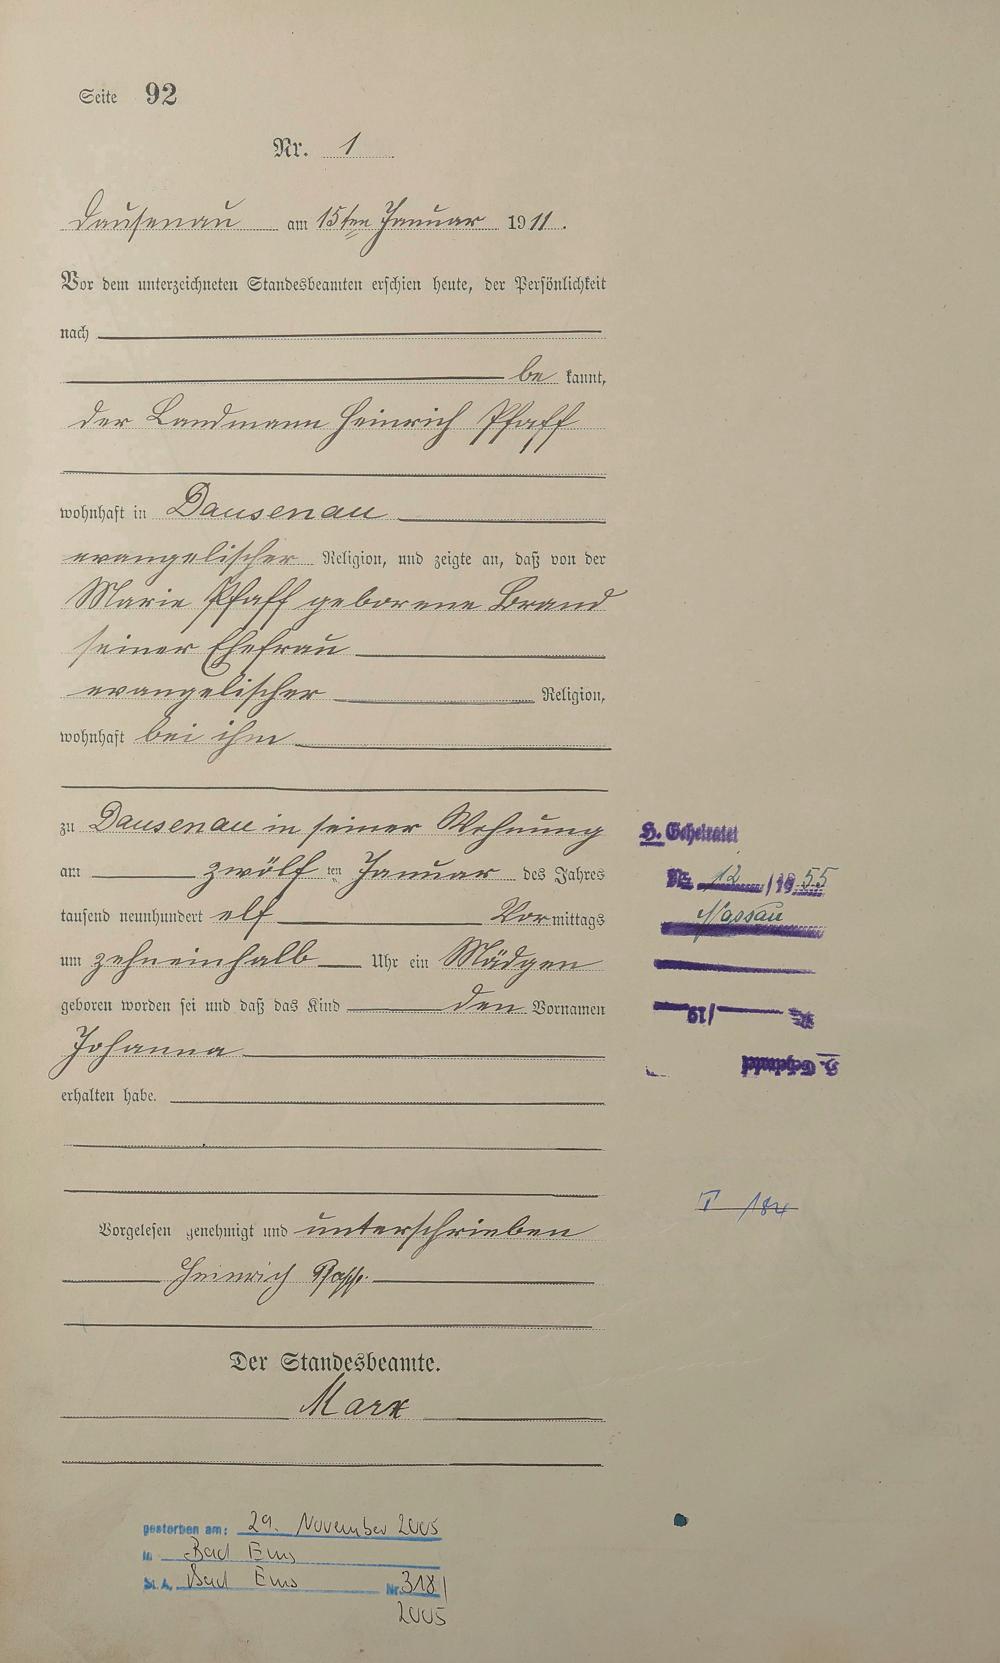 Seite 92
Nr. 1
Dausenau am 15ten Januar 1911.
Vor dem unterzeichneten Standesbeamten erschien heute, der Persönlichkeit
nach
be kannt,
der Landmann Heinrich Pfaff
wohnhaft in Dausenau
evangelischer Religion, und zeigte an, daß von der
Marie Pfaff geborene Brand
seiner Ehefrau
evangelischer Religion,
wohnhaft bei ihm
zu Dausenau in seiner Wohnung
am zwölf ten Januar des Jahres
tausend neunhundert elf Vormittags
um zehneinhalb Uhr ein Mädgen
geboren worden sei und daß das Kind den Vornamen
Johanna
erhalten habe.
Vorgelesen genehmigt und unterschrieben
Heinrich Pfaff.
Der Standesbeamte.
Marx
H. Geheiratet
Nr. 12 /19 55
Nassau
Nr. /19
H. Geheiratet
T 184
gestorben am: 29. November 2005
in Bad Ems
St. A. Bad Ems Nr. 318/
2005